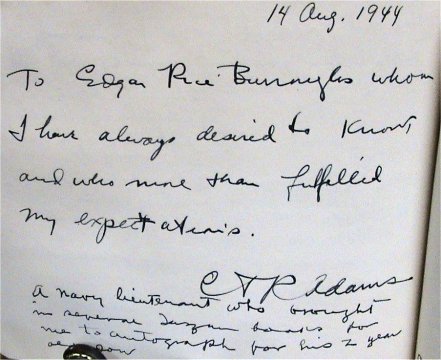 14 Aug. 1944
To Edgar Rice Burroughs whom
I have always desired to know,
and who more than fulfilled
my expectations.
C T R Adams
a navy lieutenant who brought
in several Tarzan books for
me to autograph for his 2 year
old son